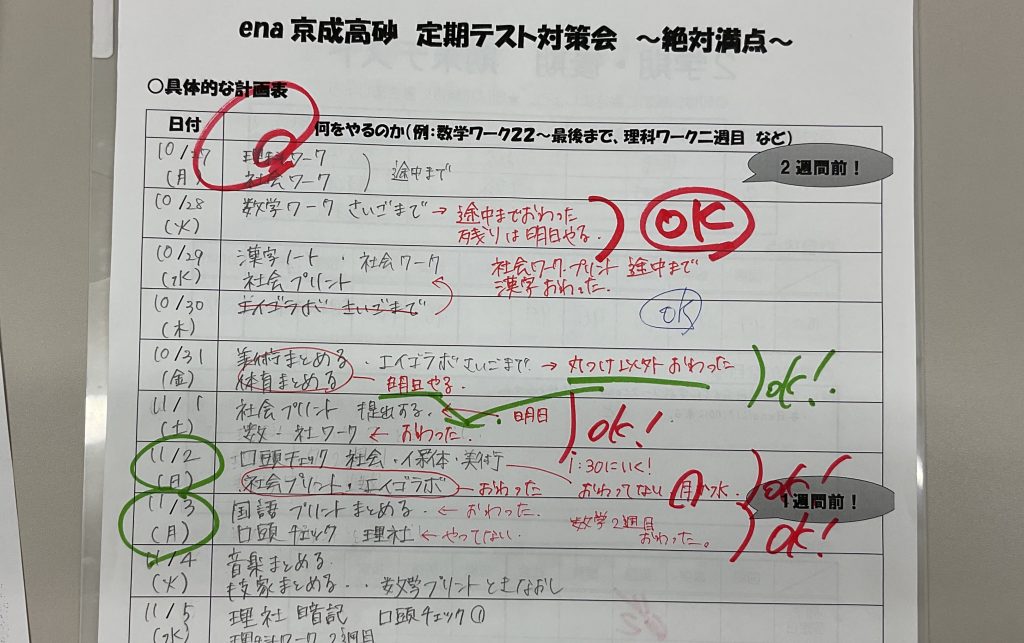 ena 京成高砂 定期テスト対策会 ～絶対満点～
○具体的な計画表
日付 何をやるのか(例：数学ワーク22～最後まで、理科ワーク二週目 など)
10/27 理科ワーク
(月) 社会ワーク 途中まで
2週間前！
10/28 数学ワーク さいごまで → 途中までおわった
(火) 残りは明日やる. OK
10/29 漢字ノート・社会ワーク 社会ワーク・プリント 途中まで
(水) 社会プリント 漢字おわった.
10/30 エイゴラボ さいごまで
(木) OK
10/31 美術まとめる ・エイゴラボさいごまで → 丸つけ以外おわった
(金) 体育まとめる 明日やる. OK!
11/1 社会プリント 提出する. ← 明日
(土) 数・社ワーク ← おわった. OK!
11/2 口頭チェック 社会・保体・美術 1:30にいく!
(月) 社会プリント・エイゴラボ おわった おわってない 月 水 OK!
1週間前！
11/3 国語プリントまとめる ← おわった. 数学2週目
(月) 口頭チェック 理社 ← やってない. おわった。 OK!
11/4 音楽まとめる
(火) 技家まとめる・・数学プリントときなおし
11/5 理社 暗記 口頭チェック①
(水) 理社ワーク 2週目